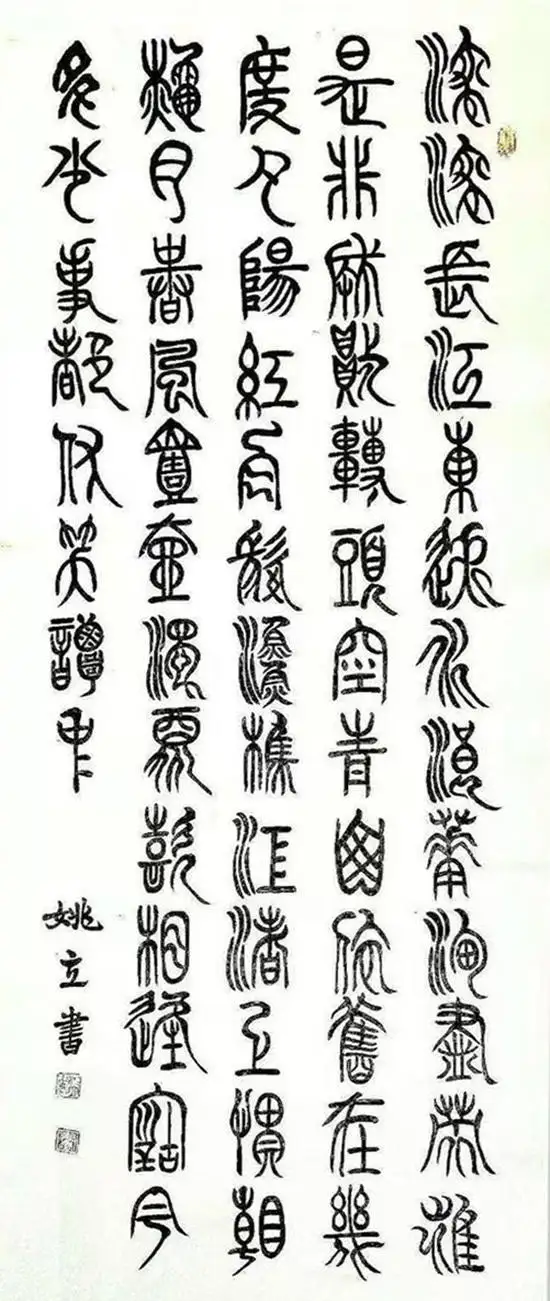 滾滾長江東逝水浪華淘盡英雄
是非成敗轉頭空青山依舊在幾
度夕陽紅白髮漁樵江渚上慣看
秋月春風壹壺濁酒喜相逢古今
多少事都付笑談中
姚立書